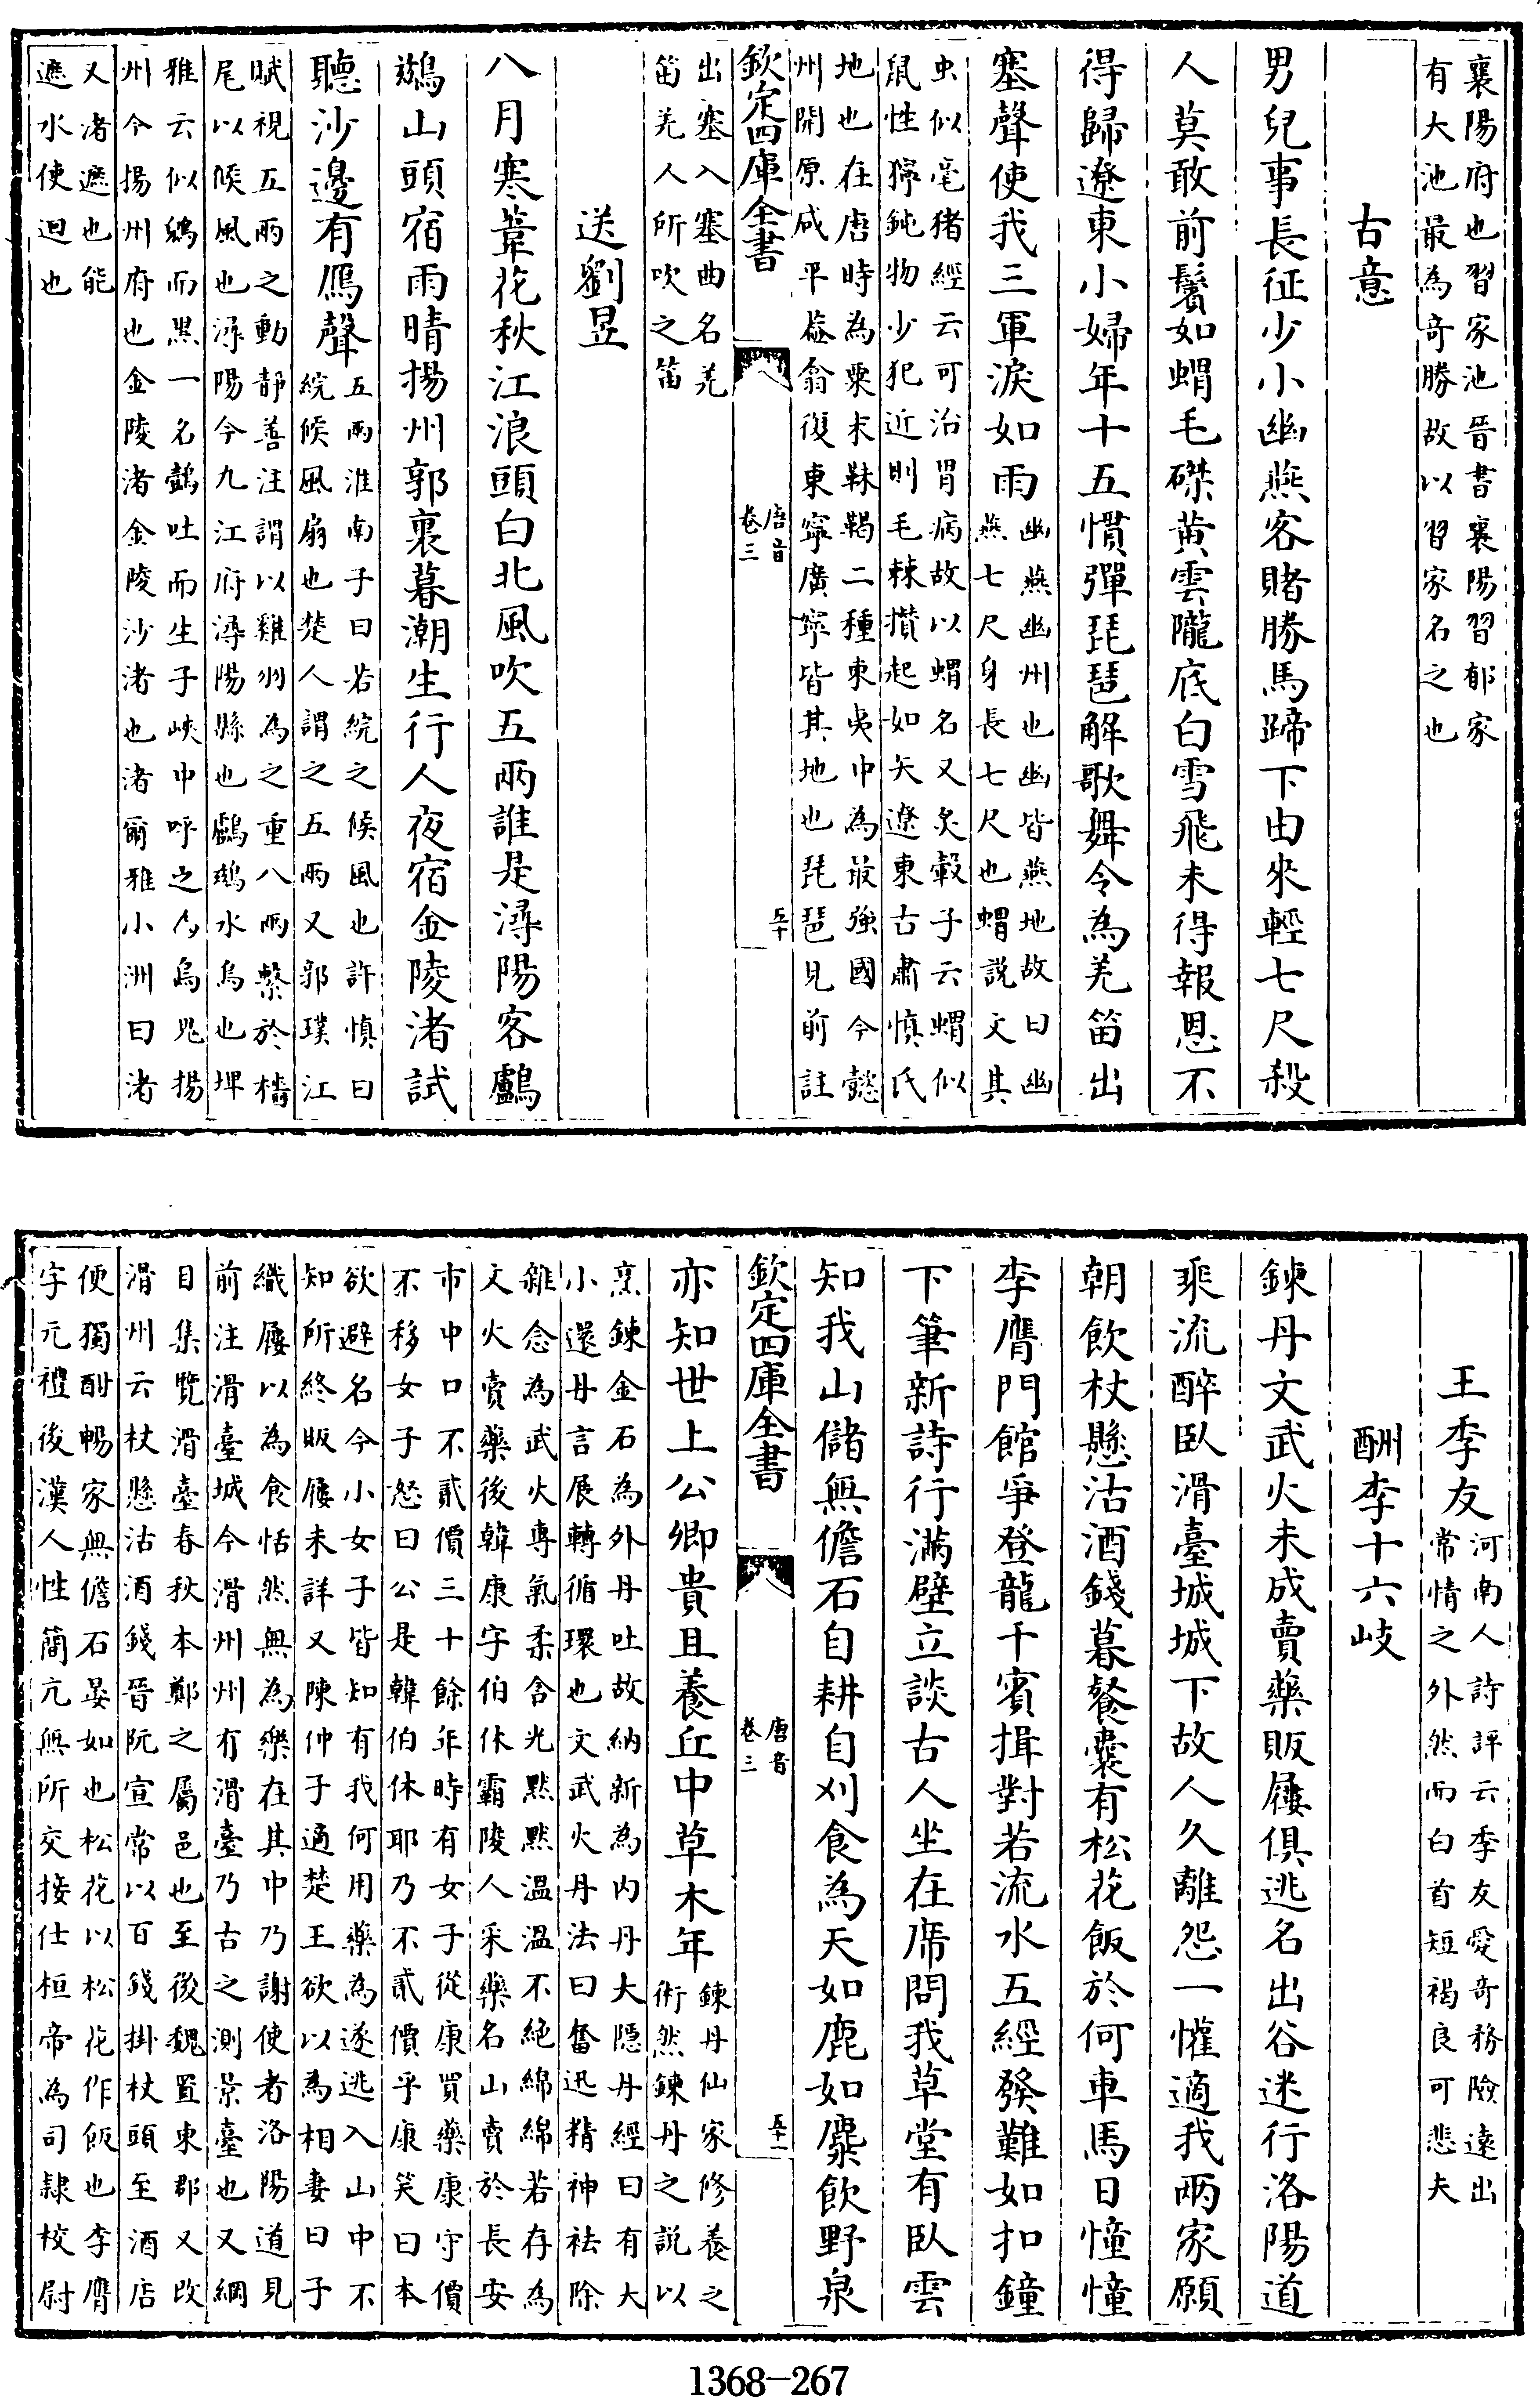 襄陽府也習家池晉書襄陽習郁家
有大池最為奇勝故以習家名之也
古意
男兒事長征少小幽燕客賭勝馬蹄下由來輕七尺殺
人莫敢前鬚如蝟毛磔黃雲隴底白雪飛未得報恩不
得歸遼東小婦年十五慣彈琵琶解歌舞今為羌笛出
塞聲使我三軍淚如雨
幽燕幽州也幽皆燕地故曰幽
燕七尺身長七尺也蝟説文其
虫似毫猪經云可治胃病故以蝟名又炙轂子云蝟似
鼠性獰鈍物少犯近則毛棘攢起如矢遼東古肅慎氏
地也在唐時為粟末靺鞨二種東夷中為最強國今懿
州開原咸平葢翕復東寧廣寧皆其地也琵琶見前註
欽定四庫全書
唐音
卷三
五十
出塞入塞曲名羌
笛羌人所吹之笛
送劉昱
八月寒葦花秋江浪頭白北風吹五兩誰是潯陽客鸕
鷀山頭宿雨晴揚州郭裏暮潮生行人夜宿金陵渚試
聽沙邊有鴈聲
五兩淮南子曰若綄之候風也許慎曰
綄候風扇也楚人謂之五兩又郭璞江
賦視五兩之動靜善注謂以雞羽為之重八兩繫於檣
尾以候風也潯陽今九江府潯陽縣也鸕鷀水鳥也埤
雅云似鷁而黑一名鷧吐而生子峽中呼之為烏鬼揚
州今揚州府也金陵渚金陵沙渚也渚爾雅小洲曰渚
又渚遮也能
遮水使迴也
王季友
河南人詩評云季友愛奇務險遠出
常情之外然而白首短褐良可悲夫
酬李十六岐
鍊丹文武火未成賣藥販屨俱逃名出谷迷行洛陽道
乘流醉臥滑臺城城下故人久離怨一懽適我兩家願
朝飲杖懸沽酒錢暮餐囊有松花飯於何車馬日憧憧
李膺門館爭登龍千賓揖對若流水五經發難如扣鐘
下筆新詩行滿壁立談古人坐在席問我草堂有臥雲
知我山儲無儋石自耕自刈食為天如鹿如麋飲野泉
欽定四庫全書
唐音
卷三
五十一
亦知世上公卿貴且養丘中草木年
鍊丹仙家修養之
術然鍊丹之説以
烹鍊金石為外丹吐故納新為内丹大隱丹經曰有大
小還丹言展轉循環也文武火丹法曰奮迅精神袪除
雜念為武火專氣柔含光黙黙溫溫不絶綿綿若存為
文火賣藥後韓康字伯休霸陵人采藥名山賣於長安
市中口不貳價三十餘年時有女子從康買藥康守價
不移女子怒曰公是韓伯休耶乃不貳價乎康笑曰本
欲避名今小女子皆知有我何用藥為遂逃入山中不
知所終販屨未詳又陳仲子適楚王欲以為相妻曰子
織屨以為食恬然無為樂在其中乃謝使者洛陽道見
前注滑臺城今滑州州有滑臺乃古之測景臺也又綱
目集覽滑臺春秋本鄭之屬邑也至後魏置東郡又改
滑州云杖懸沽酒錢晉阮宣常以百錢掛杖頭至酒店
便獨酣暢家無儋石晏如也松花以松花作飯也李膺
字元禮後漢人性簡亢無所交接仕桓帝為司隸校尉
1368-267